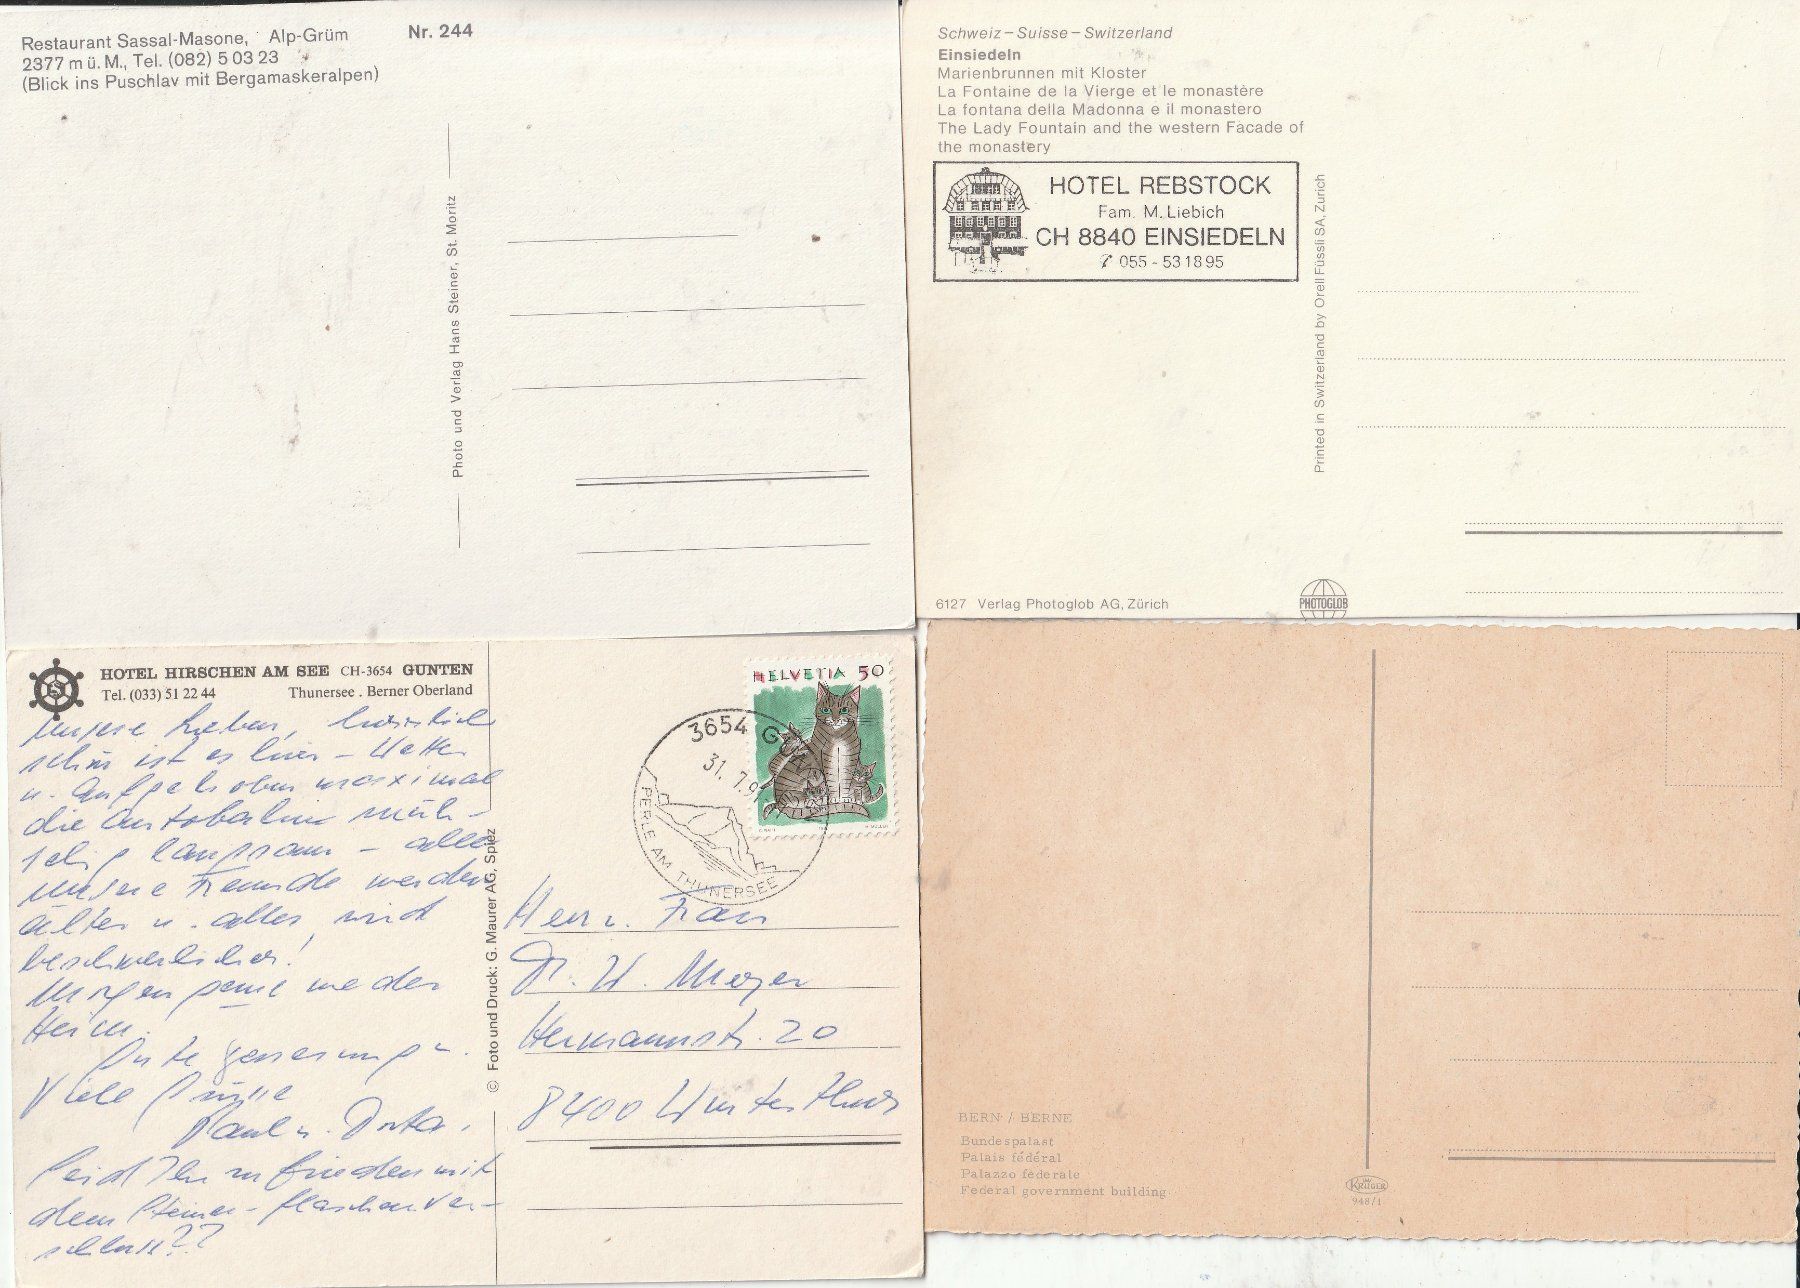 Restaurant Sassal-Masone, Alp-Grüm
2377 m ü. M., Tel. (082) 5 03 23
(Blick ins Puschlav mit Bergamaskeralpen)
Nr. 244
Photo und Verlag Hans Steiner, St. Moritz
Schweiz – Suisse – Switzerland
Einsiedeln
Marienbrunnen mit Kloster
La Fontaine de la Vierge et le monastère
La fontana della Madonna e il monastero
The Lady Fountain and the western Facade of
the monastery
HOTEL REBSTOCK
Fam. M. Liebich
CH 8840 EINSIEDELN
055 - 53 18 95
Printed in Switzerland by Orell Füssli SA, Zürich
6127 Verlag Photoglob AG, Zürich
PHOTOGLOB
HOTEL HIRSCHEN AM SEE CH-3654 GUNTEN
Tel. (033) 51 22 44 Thunersee . Berner Oberland
unsere Lieben,
schön ist es hier – Wetter
u. maximal
die müh-
selig langsam – alle
unsere Freunde werden
älter u. alles wird
beschwerlicher!
Morgen wieder
Heim.
Gute Genesung u.
Viele Grüsse
Paul u.
Seid Ihr zufrieden mit
dem flaschenver-
schluss??
© Foto und Druck: G. Maurer AG, Spiez
HELVETIA 50
3654
31. 7. 9
PERLE AM THUNERSEE
Herr u. Frau
Meyer
Hermannstr. 20
8400 Winterthur
BERN / BERNE
Bundespalast
Palais fédéral
Palazzo federale
Federal government building
KRÜGER
948/1